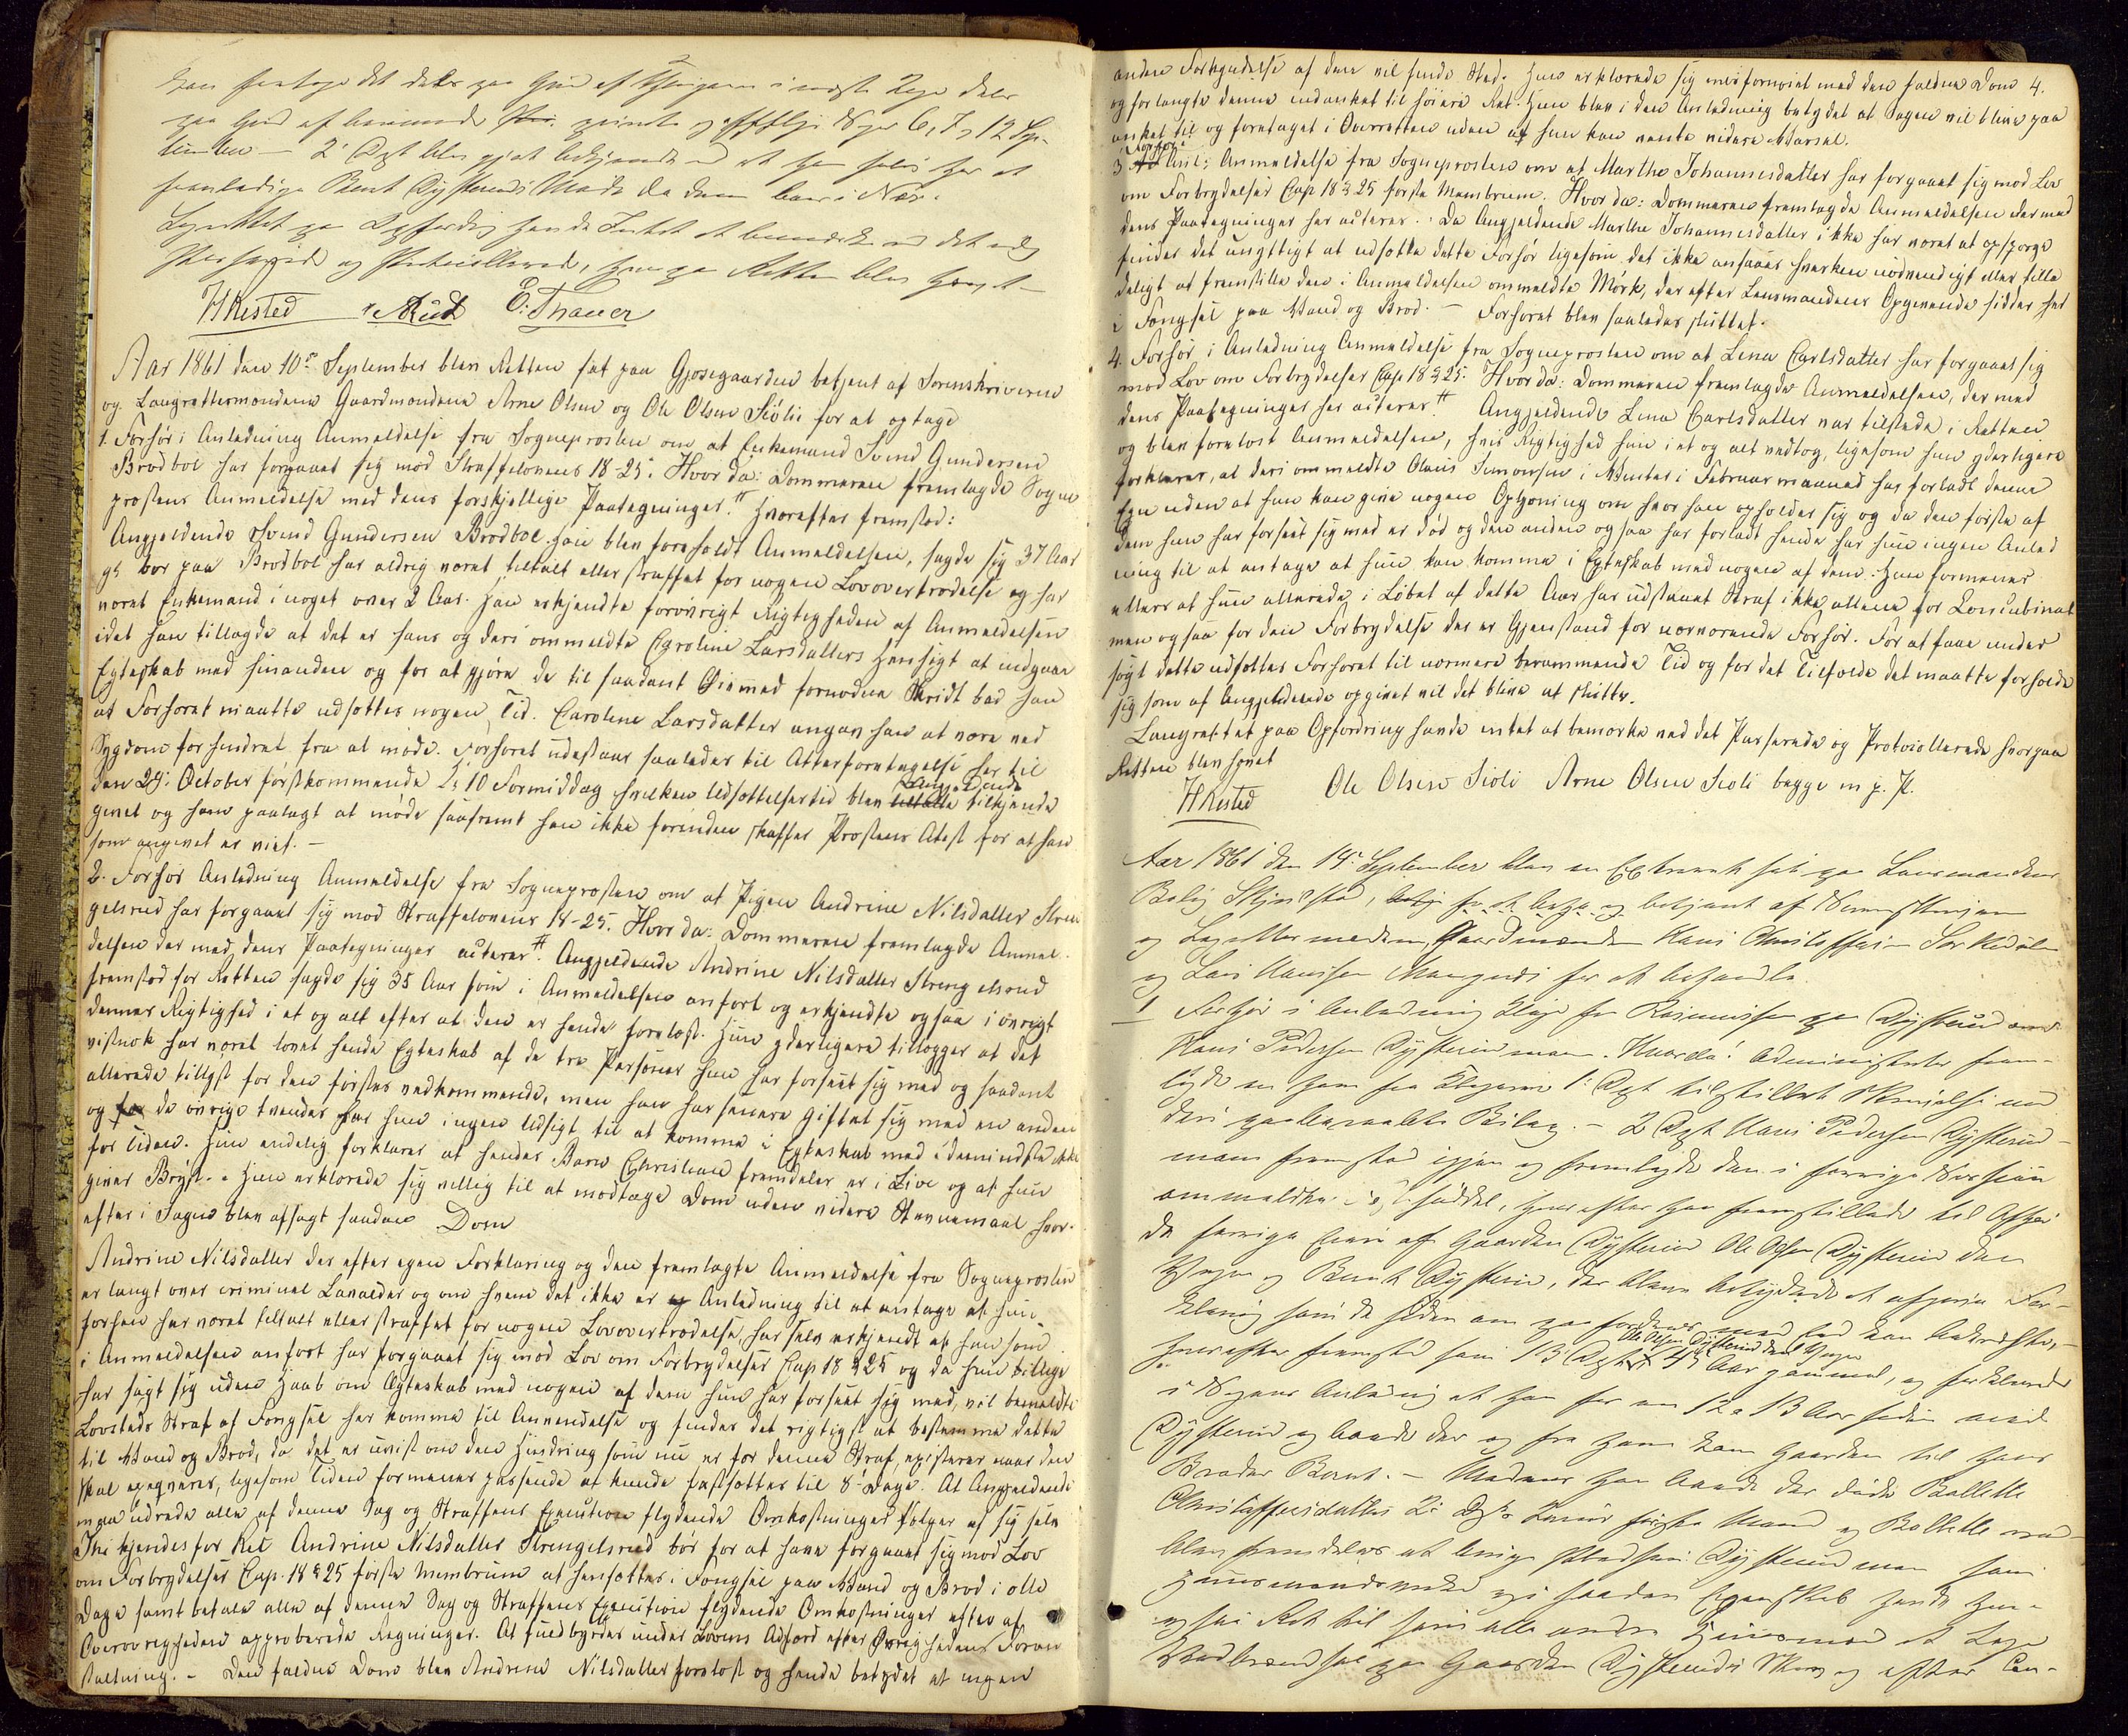 September
2' Dgt blev
Bent Dysterud's
HRisted ARud E: Thaner
Aar 1861 den 10de September blev Retten sat paa Gjøsegaarden betjent af Sorenskriveren
og Laugrettesmændene Gaardmændene Arne Olsen og Ole Olsen Siölie for at optage
1. Forhör i Anledning Anmeldelse fra Sogneprosten om at Enkemand Svend Gundersen
Brødbøl har forgaaet sig mod Straffelovens 18-25. Hvor da: Dommeren fremlagde Sogne
prostens Anmeldelse med dens forskjellige Paategninger. # Hvorefter fremstod:
Angjeldende Svend Gundersen Brødbøl. Han blev foreholdt Anmeldelsen, sagde sig 37 Aar
gl. bor paa Brødbøl har aldrig været tiltalt eller straffet for nogen Lovovertrædelse og har
været Enkemand i noget over 2 Aar. Han erkjendte forøvrigt Rigtigheden af Anmeldelsen
idet han tillagde at det er hans og deri ommeldte Caroline Larsdatters Hensigt at indgaae
Egteskab med hinanden og for at gjøre de til saadant Øiemed fornødne Skridt bad han
at Forhøret maatte udsættes nogen Tid. Caroline Larsdatter angav han at være ved
Sygdom forhindret fra at møde. Forhøret udestaar saaledes til Atterforetagelse her til
den 24: October førstkommende Kl 10 Formiddag hvilken Udsættelsestid blev tiltalte Angjeldende tilkjende
givet og ham paalagt at møde saafremt han ikke forinden skaffer Prostens Atest for at han
som angivet er viet. -
2. Forhør Anledning Anmeldelse fra Sogneprosten om at Pigen Andrine Nilsdatter Stren
gelsrud har forgaaet sig mod Straffelovens 18-25. Hvor da: Dommeren fremlagde Anmel-
delsen der med dens Paategninger acterer. # Angjeldende Andrine Nilsdatter Strengelsrud
fremstod for Retten sagde sig 35 Aar som i Anmeldelsen anført og erkjendte ogsaa iøvrigt
dennes Rigtighed i et og alt efter at den er hende forelæst. Hun yderligere tillægger at det
vistnok har været lovet hende Egteskab af de tre Personer hun har forseet sig med og saadant
allerede tillyst for den førstes vedkommende, men han har senere giftet sig med en anden
og for de øvrige tvendes har hun ingen Udsigt til at komme i Egteskab med idetmindste ikke
for Tiden. Hun endelig forklarer at hendes Barn Christian fremdeles er i Live og at hun
giver Bryst. - Hun erklærede sig villig til at modtage Dom uden videre Stevnemaal hvor-
efter i Sagen blev afsagt saadan Dom
Andrine Nilsdatter der efter egen Forklaring og den fremlagte Anmeldelse fra Sogneprosten
er langt over criminel Lavalder og om hvem det ikke er Anledning til at antage at hun
forhen har været tiltalt eller straffet for nogen Lovovertrædelse, har selv erkjendt at hun som
i Anmeldelsen anført har forgaaet sig mod Lov om Forbrydelser Cap 18 § 25 og da hun tillige
har sagt sig uden Haab om Egteskab med nogen af dem hun har forseet sig med, vil bemeldte
Lovsteds Straf af Fængsel her komme til Anvendelse og findes det rigtigst at bestemme dette
til Vand og Brød, da det er uvist om den Hindring som nu er for denne Straf, existerer naar den
skal exeqveres, ligesom Tiden formenes passende at kunde fastsættes til 8 Dage. At Angjeldende
maa udrede alle af denne Sag og Straffens Execution flydende Omkostninger følger af sig selv
Thi kjendes for Ret Andrine Nilsdatter Strengelsrud bør for at have forgaaet sig mod Lov
om Forbrydelser Cap. 18 § 25 første Membrum at hensættes i Fængsel paa Vand og Brød i otte
Dage samt betale alle af denne Sag og Straffens Execution flydende Omkostninger efter af
Overøvrigheden approberede Regninger. At fuldbyrdes under Lovens Adfærd efter Øvrighedens Foran
staltning. - Den faldne Dom blev Andrine Nilsdatter forelæst og hende betydet at ingen
anden Forkyndelse af den vil finde Sted. Hun erklærede sig misfornøiet med den faldne Dom
og forlangte denne indanket til høiere Ret. Hun blev i den Anledning betydet at Sagen vil blive paa
anket til og foretaget i Overretten uden at hun kan vente videre Varsel.
3 Forhør Anl: Anmeldelse fra Sogneprosten om at Marthe Johannesdatter har forgaaet sig mod Lov
om Forbrydelser Cap 18 § 25 første Membrum. Hvor da: Dommeren fremlagde Anmeldelsen der med
dens Paategninger her acterer. Da Angjeldende Marthe Johannesdatter ikke har været at opspørge
findes det unyttigt at udsætte dette Forhør ligesom det ikke ansaaes hverken nødvendigt eller tilla
deligt at fremstille den i Anmeldelsen ommeldte Mørk, der efter Lensmandens Opgivende sidder her
i Fængsel paa Vand og Brød. - Forhøret blev saaledes sluttet.
4. Forhør i Anledning Anmeldelse fra Sogneprosten om at Lena Carlsdatter har forgaaet sig
mod Lov om Forbrydelser Cap 18 § 25. Hvor da: Dommeren fremlagde Anmeldelsen, der med
dens Paategninger her acterer. # Angjeldende Lena Carlsdatter var tilstede i Retten
og blev forelæst Anmeldelsen, hvis Rigtighed hun i et og alt vedtog, ligesom hun yderligere
forklarer, at deri ommeldte Olaus Simonsen i Vinter i Februar maaned har forladt denne
Egn uden at hun kan give nogen Oplysning om hvor han opholder sig og da den første af
dem hun har forseet sig med er død og den anden ogsaa har forladt hende har hun ingen Anled
ning til at antage at hun kan komme i Egteskab med nogen af dem. Hun formener
ellers at hun allerede i Løbet af dette Aar har udstaaet Straf ikke allene for Concubinat
men ogsaa for den Forbrydelse der er Gjenstand for nærværende Forhør. For at faae under
søgt dette udsættes Forhøret til nærmere berammende Tid og for det Tilfælde det maatte forholde
sig som af Angjeldende opgivet vil det blive at slutte.
Laugrettet paa Opfordring havde intet at bemærke ved det Passerede og Protocollerede hvorpaa
Retten blev hævet
HRisted Ole Olsen Siöli Arne Olsen Siöli begge m. p. P.
Aar 1861 den 14: September blev en Extraret sat paa Lensmandens
Bolig Skjølstad, betjent af
og Lagrettesmændene, Gaardmændene Hans Christoffersen
og Lars Hansen for at behandle
1 Forhør i Anledning Klage fra Rasmussen paa Dysterud
Hans Pedersen Dysterud. Hvorda! Administrator frem-
lagde en ham fra Klageren 1: Dgt tilstillet Skrivelse med
deri paaberaabte Bilag. - 2 Dgt Hans Pedersen Dysterud-
fremstod igjen og fremlagde den i forrige Session
ommeldte, hvorefter han fremstillede til
de forrige Eiere af Gaarden Dysterud Ole Olsen Dysterud den
Yngre og Bernt Dysterud, der bleve betydede at afgive For-
klaring
hvorefter fremstod som 1ste Dgt Ole Olsen Dysterud den Yngre 45 Aar gammel, og forklarede
i Sagens Anledning at han for en 12 a 13 Aar siden
Dysterud og boede der og fra ham kom Gaarden til hans
Broder Bernt. - Medens han boede der døde Bollette
Christoffersdatters 2: Dgts Kones første Mand og Bollette
blev fremdeles at bruge Pladsen Dysterud som
Huusmandsenke og i saadan Egenskab havde hun
ogsaa Ret til som alle andre Huusmænd at tage
Brændsel paa Gaarden Dysteruds Skov og efter